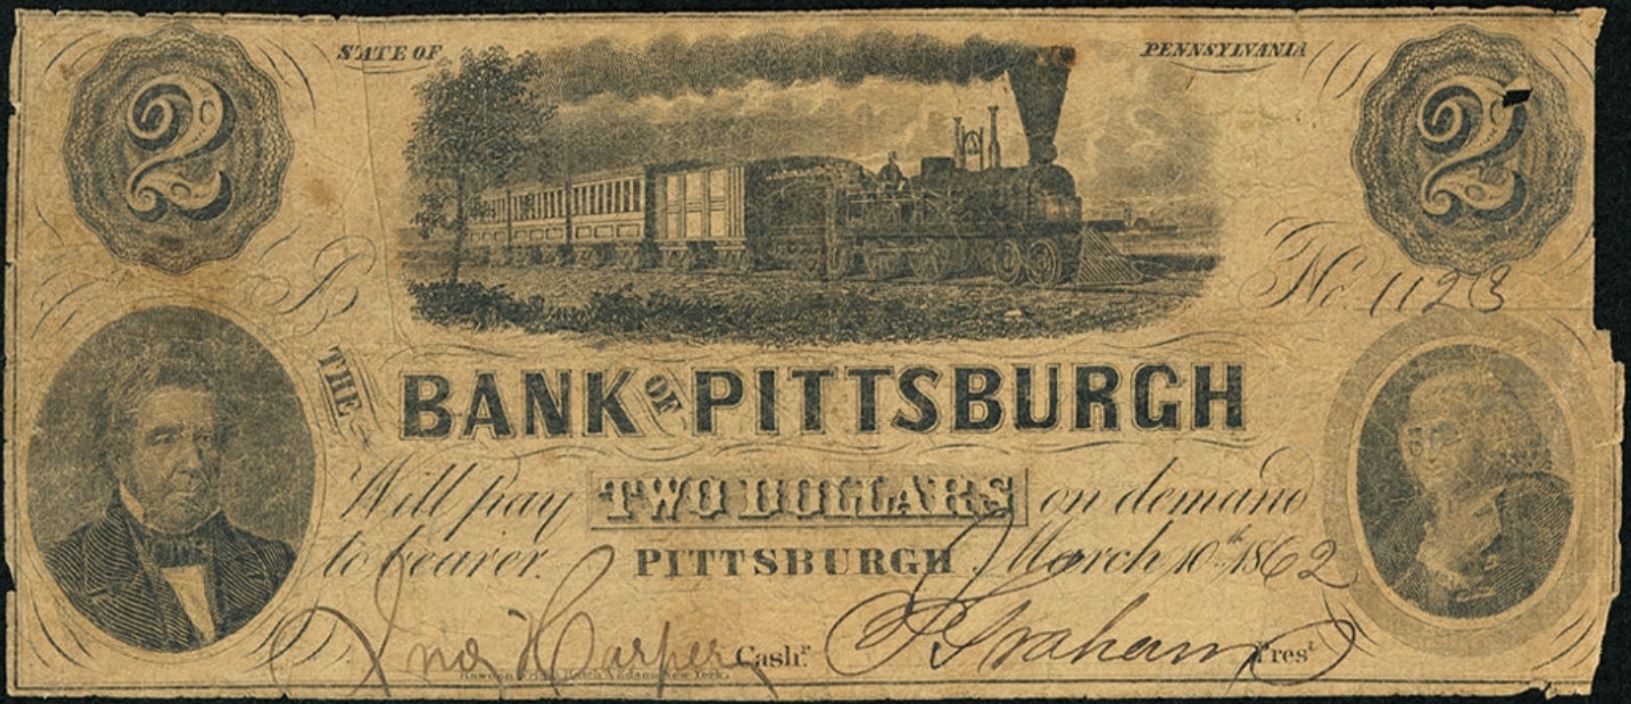 2 STATE OF PENNSYLVANIA 2
B No. 1123
THE BANK OF PITTSBURGH
Will pay TWO DOLLARS on demand
to bearer. PITTSBURGH March 10th 1862
Jno Harper Cashr. Graham Prest
New York.